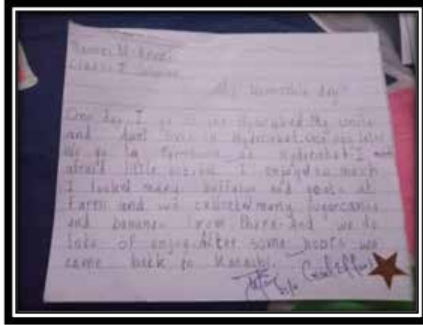 Class: I
My Memorable day"
One day I go to the Hyderabad. My uncle
and aunt lives in Hyderabat.
we go to farmhouse in Hyderabat. I
afraid little bit, but I enjoyed so much
I looked many buffalos and goats at
Farm and we many sugarcane
and bananas from there. And we do
lots of enjoy. After some hours we
came back to Karachi.
Good Effort